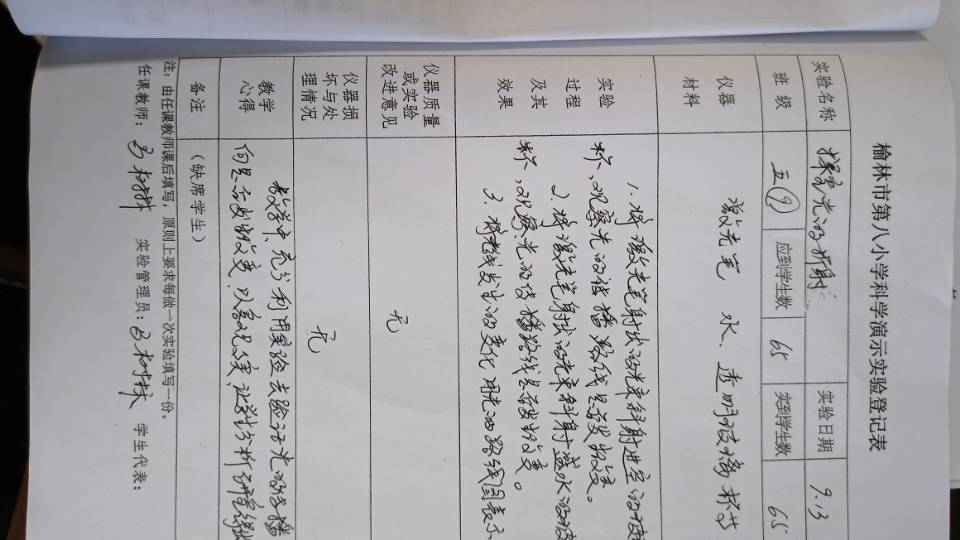 榆林市第八小学科学演示实验登记表
实验名称 探究光的折射 实验日期 9.13
班级 五(9) 应到学生数 65 实到学生数 65
仪器材料 激光笔 水、透明玻璃杯等
实验过程及其效果
1. 将激光笔射出的光束斜射进空的玻
杯、观察光的传播路线是否发生改变。
2. 将激光笔射出的光束斜射盛水的玻
杯、观察光的传播路线是否发生改变。
3. 将光线发生的变化用光的路线图表示
仪器质量或实验改进意见 无
仪器损坏与处理情况 无
教学心得
教学中,充分利用实验去验证光的传播
向是否发生改变,以
让学生分析研究
备注 (缺席学生)
注:由任课教师课后填写,原则上要求每做一次实验填写一份。
任课教师: 实验管理员: 学生代表: